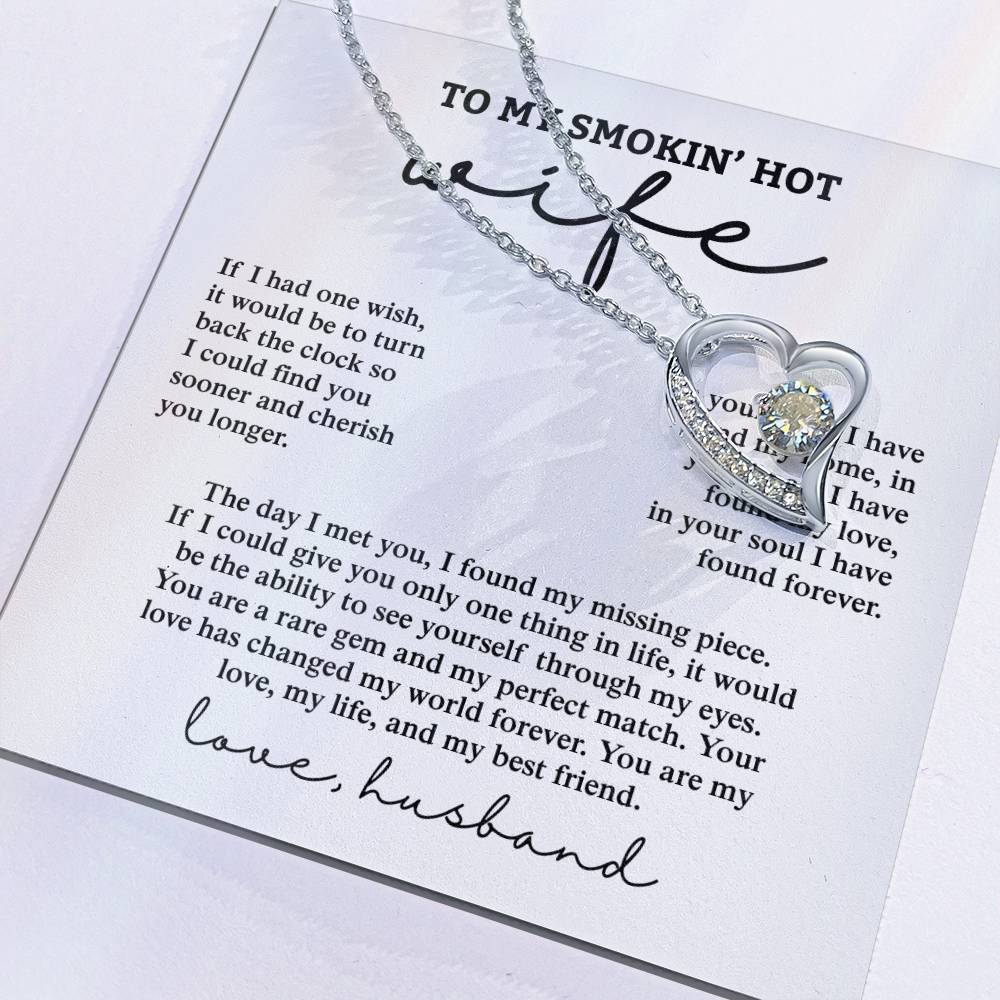 TO MY SMOKIN' HOT
wife
If I had one wish,
it would be to turn
back the clock so
I could find you
sooner and cherish
you longer.
I have
my home, in
I have
found my love,
in your soul I have
found forever.
The day I met you, I found my missing piece.
If I could give you only one thing in life, it would
be the ability to see yourself through my eyes.
You are a rare gem and my perfect match. Your
love has changed my world forever. You are my
love, my life, and my best friend.
love, husband